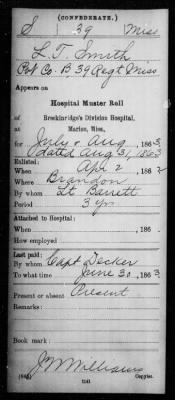 (CONFEDERATE.)
S 39 Miss
L. T. Smith
Pvt Co. B 39 Regt Miss
Appears on
Hospital Muster Roll
of
Breckinridge's Division Hospital,
Marion, Miss,
for July & Aug, 1863
dated Aug 31, 1863
Enlisted:
When Apr 2, 1862
Where Brandon
By whom Lt Barrett
Period 3 yrs
Attached to Hospital:
When , 186 .
How employed
Last paid:
By whom Capt Decker
To what time June 30, 1863
Present or absent Present
Remarks:
Book mark:
J M Williams
Copyist.